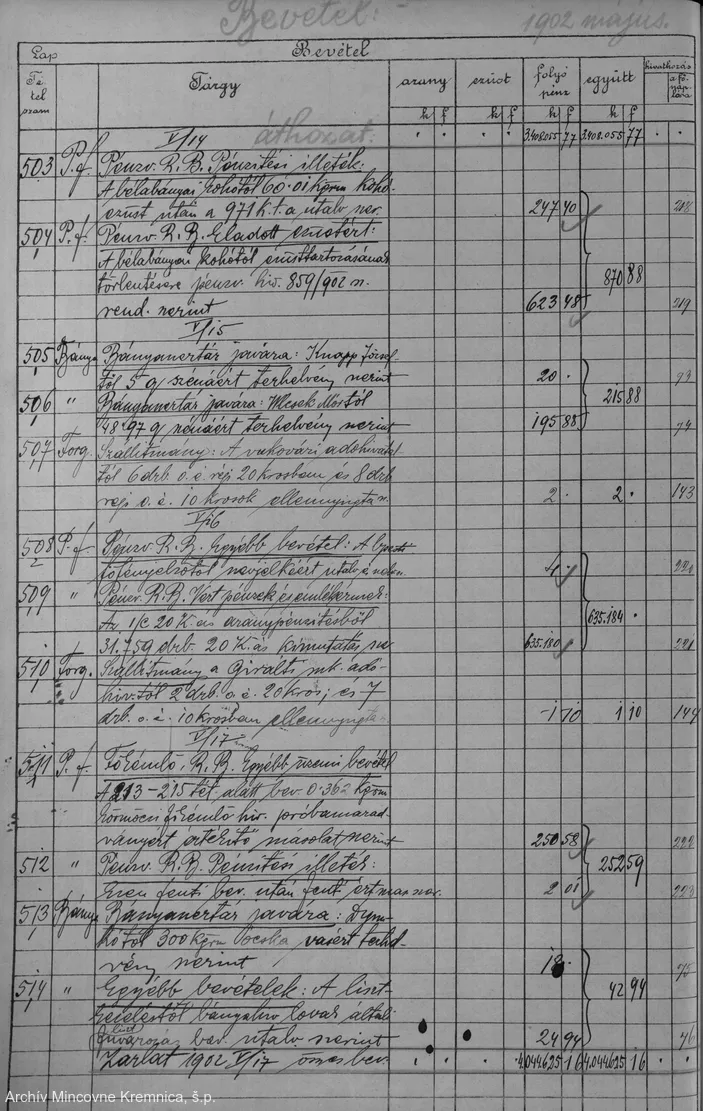 Bevétel: 1902 május.
Lap Bevétel
Tétel szám Tárgy arany ezüst folyó pénz együtt hivatkozás a fő naplóra
k f k f k f k f
V/14 áthozat: 3.408.055 77 3.408.055 77
503 P.f. Pénzv. R. B. Pénzitési illeték:
A bélabányai kohótól 60.01 kgrm kohó-
ezüst után a 971 k.t.a. utalv. sz. 247 40 218
504 P.f. Pénzv. R. B. Eladott ezüstért:
A bélabányai kohótól ezüsttartozásának
törlesztésére pénzv. hiv. 859/902 sz. 870 88
rend. szerint 623 48 219
V/15
505 Bánya Bányaszertár javára: Knapp József-
től 5 q szénáért terhelvény szerint 20 . 73
506 " Bányaszertár javára: Mesek Mór tól 215 88
48.97 q szénáért terhelvény szerint 195 88 74
507 Forg. Szállitmány: A vukovári adóhivatal
tól 6 drb o.é. régi 20 krosban és 8 drb
régi o.é. 10 krosok ellennyugta sz. 2 . 2 . 143
V/16
508 P.f. Pénzv. R. B. Egyébb bevétel: A
főfémjelzőtől utalvá 4 . 220
509 " Pénzv. R. B. Vert pénzek és emlékérmek:
Az 1/c 20 K.ás aranypénzitésből 635.184 .
31.759 drb. 20 K.ás kimutatás sz. 635.180 221
510 Forg. Szállitmány a Giralti mk. adó-
hiv.tól 2 drb. o.é. 20 krós; és 7
drb. o.é. 10 krósban ellennyugta 1 10 1 10 144
V/17
511 P.f. Főfémlő. R. B. Egyébb üzemi bevétel
A 213-215 tét. alatt bev. 0.362 kgrm
Körmöczi főfémlő hiv. próbamarad-
ványért értékitő másolat szerint 250 58 222
512 " Pénzv. R. B. Pénzitési illeték: 252 59
Ezen fenti bev. után fenti ért. más. sz. 2 01 223
513 Bánya Bányaszertár javára: Dym-
kótól 300 kgrm vasért terhel-
vény szerint 18 . 75
514 " Egyébb bevételek: A liszt 42 94
bányahiv lovak általi
liszt fuvarozás bev. utalv. szerint 24 94 76
Zárlat 1902 V/17 összes bev. 4.044.625 16 4.044.625 16
Archív Mincovne Kremnica, š.p.